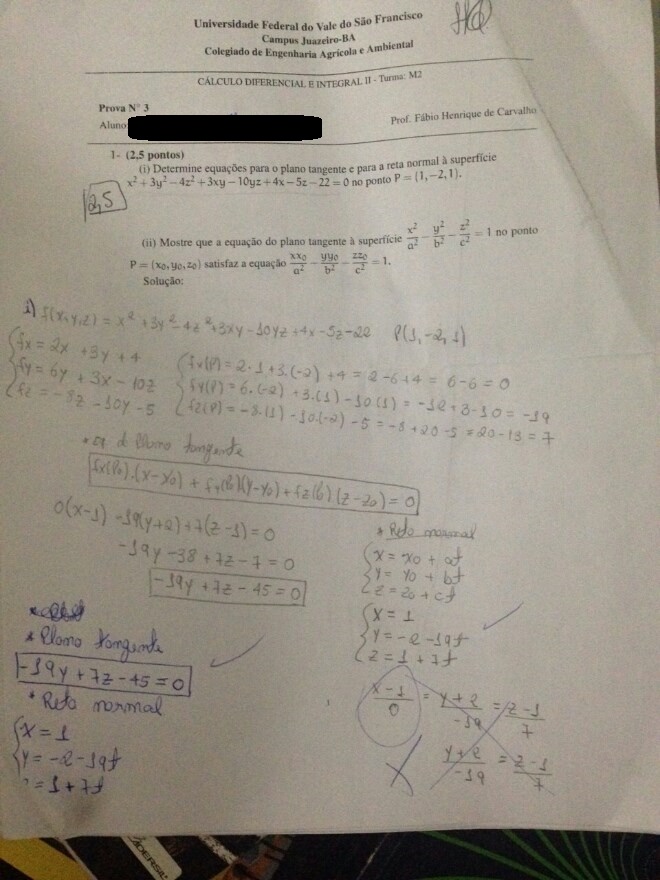 Universidade Federal do Vale do São Francisco
Campus Juazeiro-BA
Colegiado de Engenharia Agrícola e Ambiental
CÁLCULO DIFERENCIAL E INTEGRAL II - Turma: M2
Prova N° 3
Aluno
Prof. Fábio Henrique de Carvalho
1- (2,5 pontos)
(i) Determine equações para o plano tangente e para a reta normal à superfície
x² + 3y² − 4z² + 3xy − 10yz + 4x − 5z − 22 = 0 no ponto P = (1, −2, 1).
2,5
(ii) Mostre que a equação do plano tangente à superfície x²/a² − y²/b² − z²/c² = 1 no ponto
P = (x₀, y₀, z₀) satisfaz a equação xx₀/a² − yy₀/b² − zz₀/c² = 1.
Solução:
i) f(x,y,z) = x² + 3y² − 4z² + 3xy − 10yz + 4x − 5z − 22 P(1, −2, 1)
fx = 2x + 3y + 4
fy = 6y + 3x − 10z
fz = −8z − 10y − 5
fx(P) = 2·1 + 3·(−2) + 4 = 2 − 6 + 4 = 6 − 6 = 0
fy(P) = 6·(−2) + 3·(1) − 10(1) = −12 + 3 − 10 = −19
fz(P) = −8·(1) − 10·(−2) − 5 = −8 + 20 − 5 = 20 − 13 = 7
* eq d Plano tangente
fx(P₀)·(x−x₀) + fy(P₀)(y−y₀) + fz(P₀)·(z−z₀) = 0
0(x−1) − 19(y+2) + 7(z−1) = 0
−19y − 38 + 7z − 7 = 0
−19y + 7z − 45 = 0
* Reta normal
x = x₀ + at
y = y₀ + bt
z = z₀ + ct
x = 1
y = −2 − 19t
z = 1 + 7t
(x−1)/0 = (y+2)/−19 = (z−1)/7
(y+2)/−19 = (z−1)/7
* Plano tangente
−19y + 7z − 45 = 0
* Reta normal
x = 1
y = −2 − 19t
= 1 + 7t